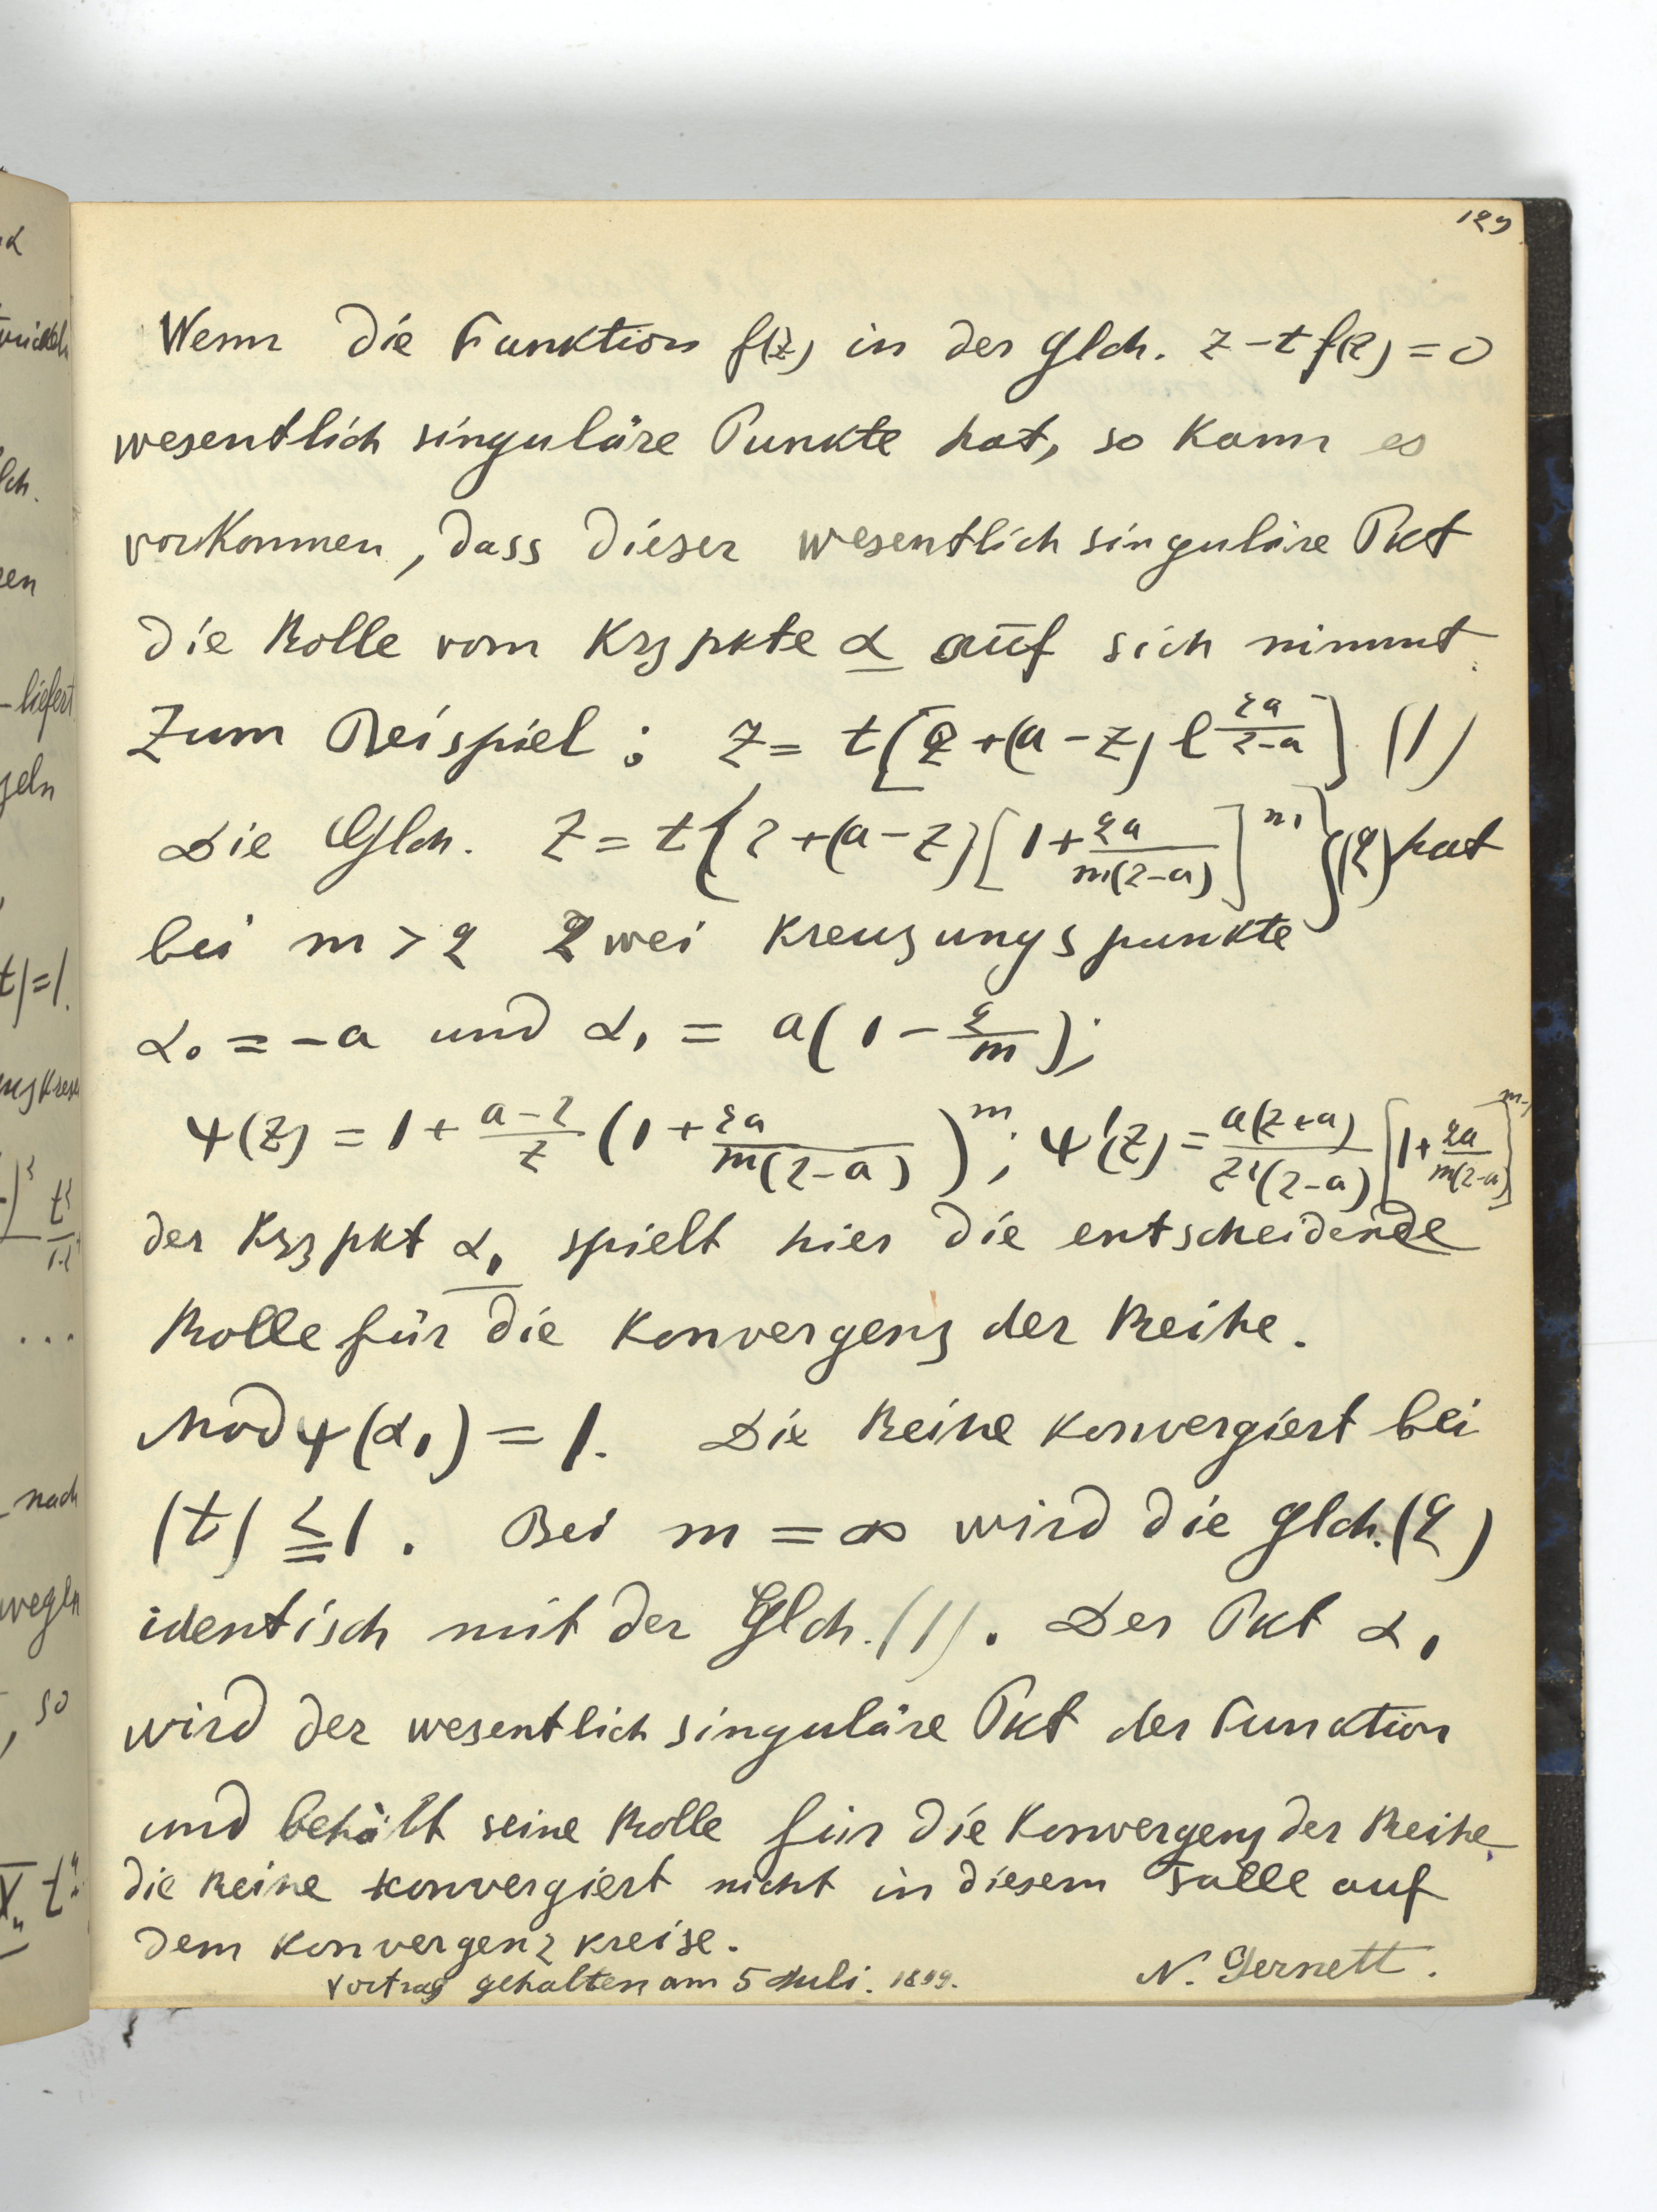 129
Wenn die Funktion f(z) in der Glch. z - t f(z) = 0
wesentlich singuläre Punkte hat, so kann es
vorkommen, dass dieser wesentlich singuläre Pkt
die Rolle vom Krzpkte α auf sich nimmt.
Zum Beispiel: z = t[z + (a - z) e^{\frac{2a}{z-a}}] (1)
Die Glch. z = t{z + (a - z)[1 + \frac{2a}{m(z-a)}]^m}(2) hat
bei m > 2 zwei Kreuzungspunkte
α₀ = -a und α₁ = a(1 - \frac{2}{m});
ψ(z) = 1 + \frac{a-z}{z} (1 + \frac{2a}{m(z-a)})^m; ψ'(z) = \frac{a(z+a)}{z²(z-a)} [1 + \frac{2a}{m(z-a)}]^{m-1}
der Krzpkt α₁ spielt hier die entscheidende
Rolle für die Konvergenz der Reihe.
Mod ψ(α₁) = 1. Die Reihe konvergiert bei
|t| ≦ 1. Bei m = ∞ wird die Glch. (2)
identisch mit der Glch. (1). Der Pkt α₁
wird der wesentlich singuläre Pkt der Funktion
und behält seine Rolle für die Konvergenz der Reihe.
die Reihe konvergiert nicht in diesem Falle auf
dem Konvergenzkreise.
Vortrag gehalten am 5 Juli. 1899. N. Gernett.